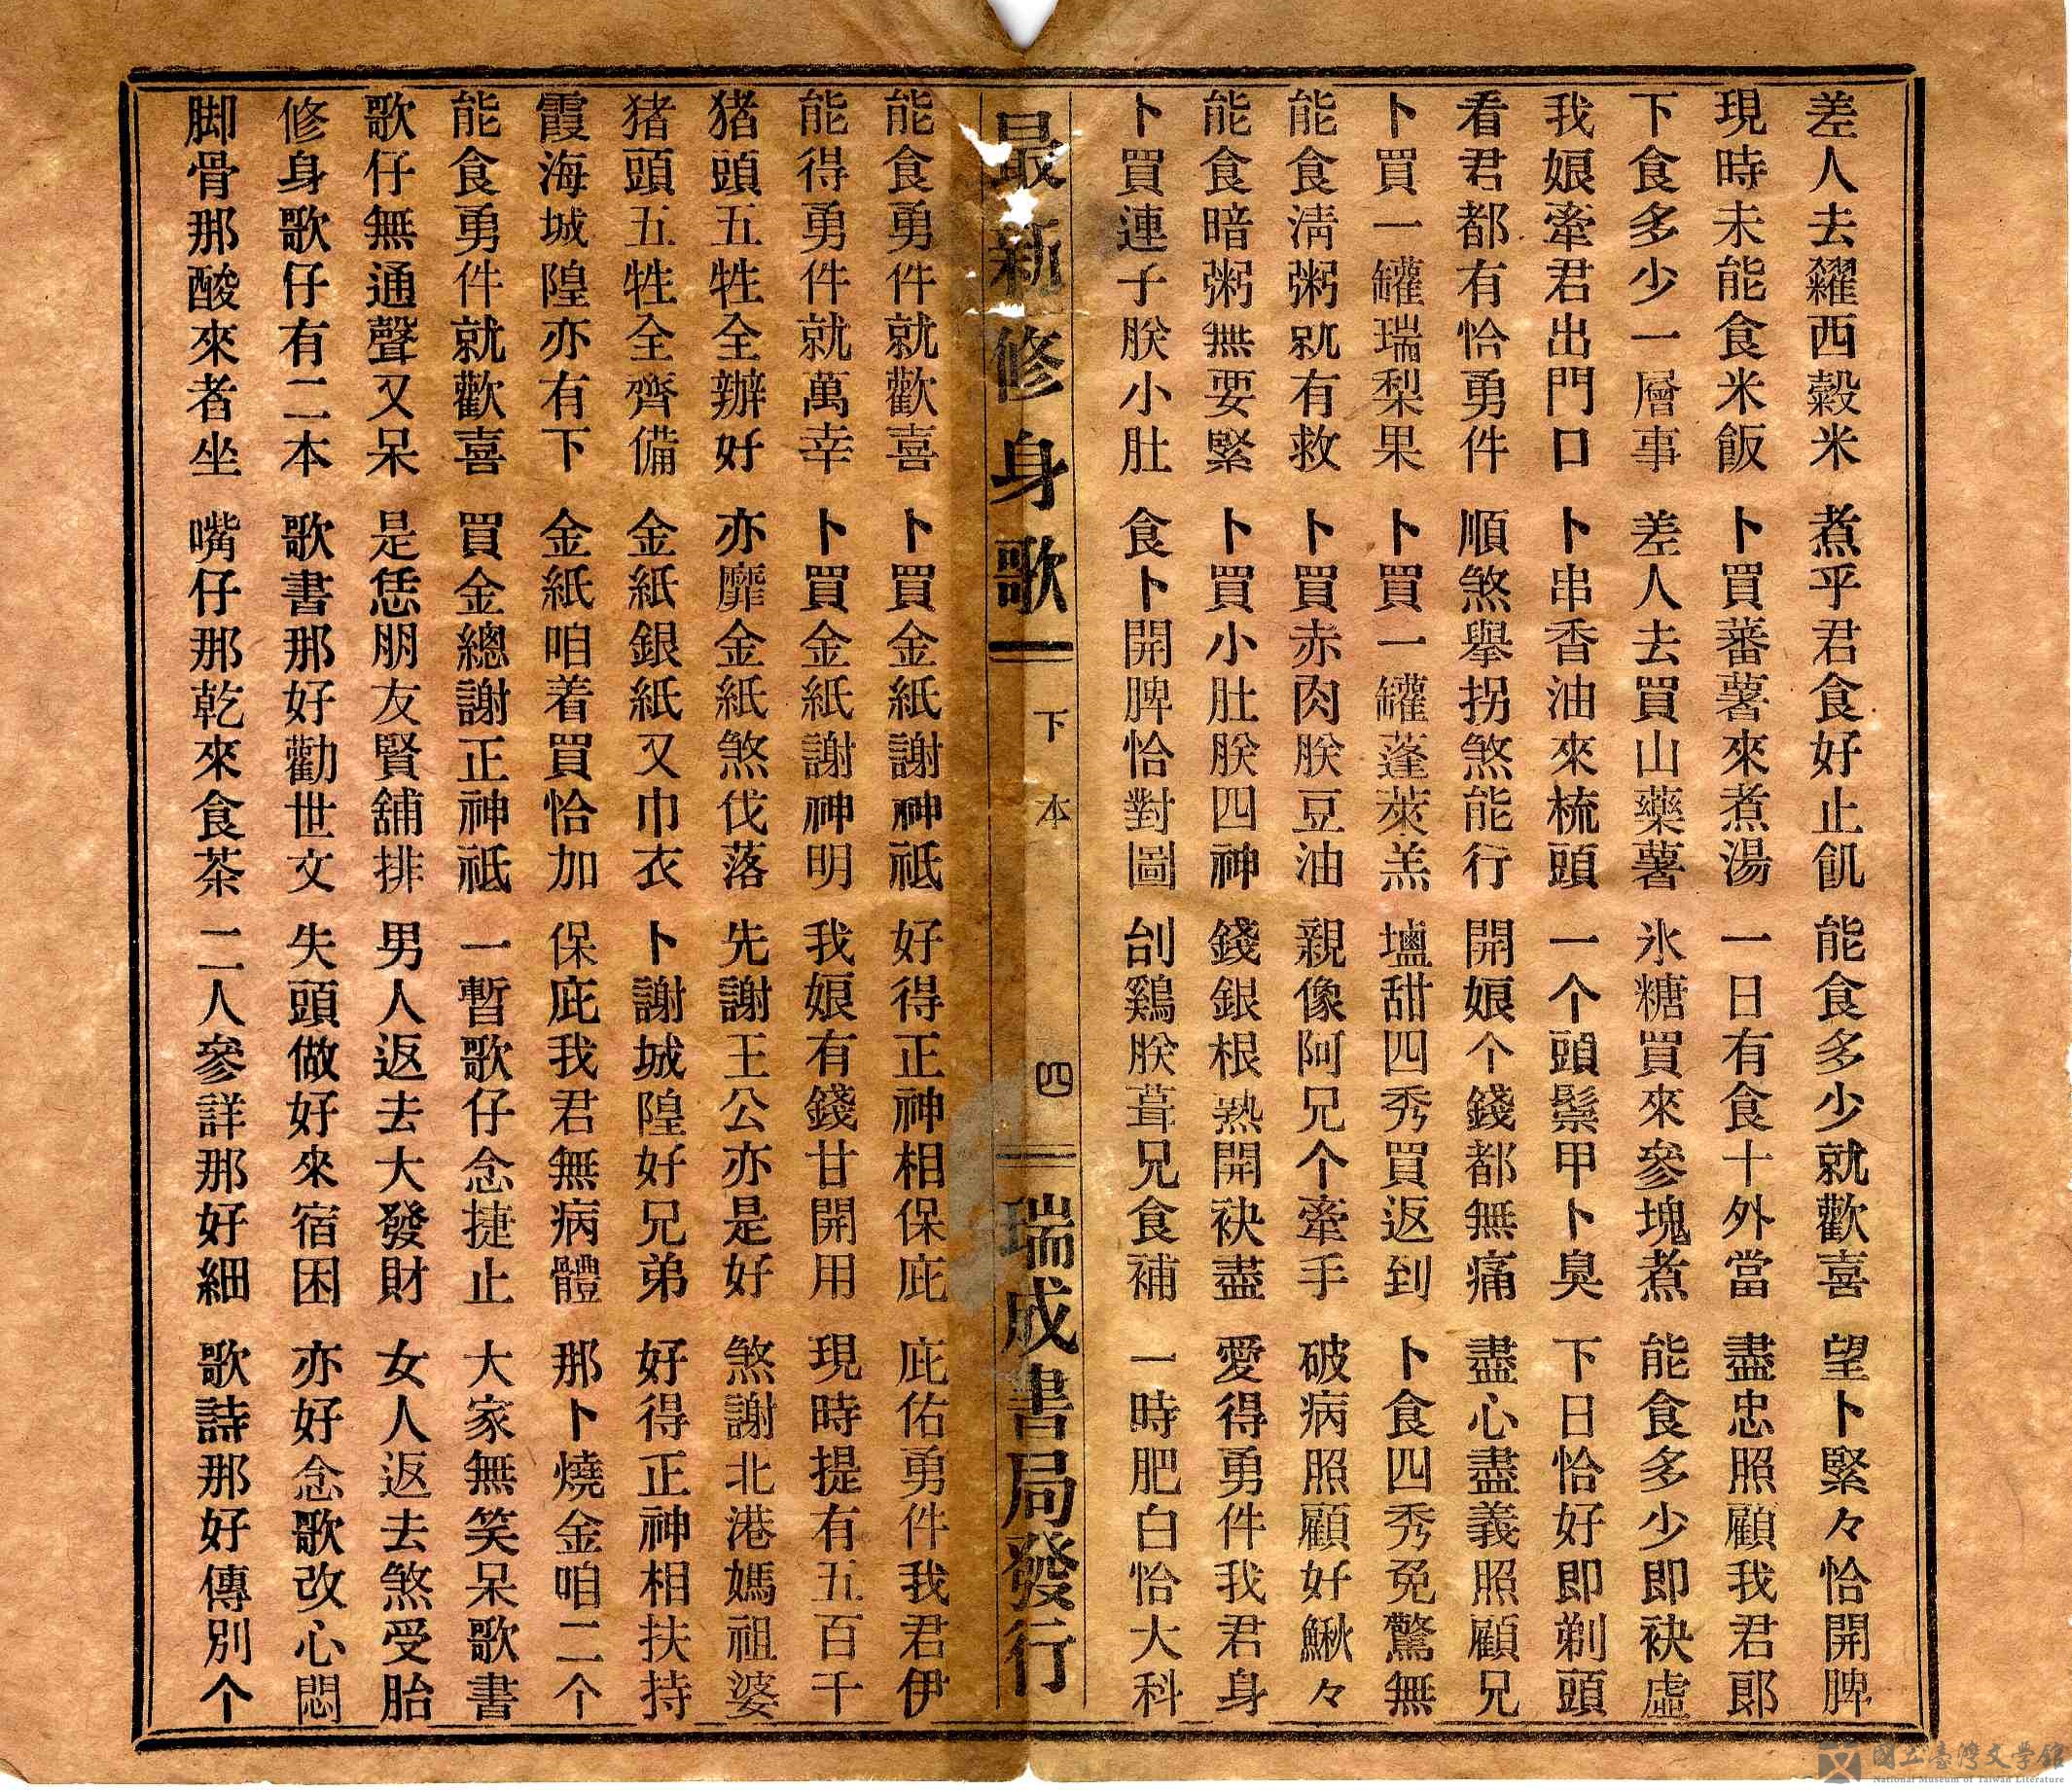 差人去糴西穀米 煮乎君食好止飢 能食多少就歡喜 望卜緊々恰開脾
現時未能食米飯 卜買蕃薯來煮湯 一日有食十外當 盡忠照顧我君郎
下食多少一層事 差人去買山藥薯 氷糖買來參塊煮 能食多少即袂虛
我娘牽君出門口 卜串香油來梳頭 一个頭鬃甲卜臭 下日恰好即剃頭
看君都有恰勇件 順煞擧拐煞能行 開娘个錢都無痛 盡心盡義照顧兄
卜買一罐瑞梨果 卜買一罐蓬萊羔 壚甜四秀買返到 卜食四秀免驚無
能食淸粥就有救 卜買赤肉朕豆油 親像阿兄个牽手 破病照顧好鰍々
能食暗粥無要緊 卜買小肚朕四神 錢銀根熟開袂盡 愛得勇件我君身
卜買連子朕小肚 食卜開脾恰對圖 刣鷄朕茸兄食補 一時肥白恰大科
最新修身歌 下本 四 瑞成書局發行
能食勇件就歡喜 卜買金紙謝神祗 好得正神相保庇 庇佑勇件我君伊
能得勇件就萬幸 卜買金紙謝神明 我娘有錢甘開用 現時提有五百千
猪頭五牲全辦好 亦靡金紙煞伐落 先謝王公亦是好 煞謝北港媽祖婆
猪頭五牲全齊備 金紙銀紙又巾衣 卜謝城隍好兄弟 好得正神相扶持
霞海城隍亦有下 金紙咱着買恰加 保庇我君無病體 那卜燒金咱二个
能食勇件就歡喜 買金總謝正神祗 一暫歌仔念捷止 大家無笑呆歌書
歌仔無通聲又呆 是恁朋友賢舖排 男人返去大發財 女人返去煞受胎
修身歌仔有二本 歌書那好勸世文 失頭做好來宿困 亦好念歌改心悶
脚骨那酸來者坐 嘴仔那乾來食茶 二人參詳那好細 歌詩那好傳別个
國立臺灣文學館
National Museum of Taiwan Literature